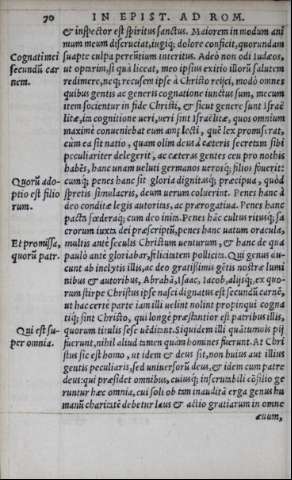 70 IN EPIST. AD ROM.
& inspector est spiritus sanctus. Maiorem in modum ani
mum meum discruciat, iugiq; dolore conficit, quorundam
Cognatimei suapte culpa pereuntium interitus. Adeò non odi Iudæos,
secundũ car ut optarim, si quà liceat, meo ipsius exitio illorũ salutem
nem. redimere, neq; recusem ipse à Christo reijci, modò omnes
quibus gentis ac generis cognatione iunctus sum, mecum
item socientur in fide Christi, & sicut genere sunt Israë
litæ, ita cognitione ueri, ueri sint Israëlitæ, quos omnium
maximè conueniebat eum amplecti, quẽ lex promiserat,
cùm ea sit natio, quam olim deus à cæteris secretam sibi
peculiariter delegerit, ac cæteras gentes ceu pro nothis
habẽs, hanc unam ueluti germanos ueroq́; filios fouerit:
Quorũ ado- cumq́; penes hanc sit gloria dignitasq́; præcipua, quòd
ptio est filio spretis simulacris, deum uerum coluerint. Penes hanc à
rum. deo conditæ legis autoritas, ac prærogatiua. Penes hanc
pacta fœderaq́; cum deo inita. Penes hãc cultus ritusq́; sa
crorum iuxta dei præscriptũ, penes hanc uatum oracula,
Et promissa, multis antè seculis Christum uenturum, & hanc de qua
quorũ patr. paulò antè gloriabar, felicitatem pollicita. Qui genus du-
cunt ab inclytis illis, ac deo gratissimis gẽtis nostræ lumi
nibus & autoribus, Abrahã, Isaac, Iacob, alijsq́;, ex quo-
rum stirpe Christus ipse nasci dignatus est secundũ carnẽ,
ut hac certè parte iam illi uelint nolint propinqui cogna
tiq́; sint Christo, qui longè præstantior est patribus illis,
Qui est su- quorum titulis sese uẽditant. Siquidem illi quãtumuis pij
per omnia. fuerunt, nihil aliud tamen quàm homines fuerunt. At Chri
stus sic est homo, ut idem & deus sit, non huius aut illius
gentis peculiaris, sed uniuersorũ deus, & idem cum patre
deus: qui præsidet omnibus, cuiusq́; inscrutabili cõsilio ge
runtur hæc omnia, cui soli ob tam inauditã erga genus hu
manũ charitatẽ debetur laus & actio gratiarum in omne
æuum,